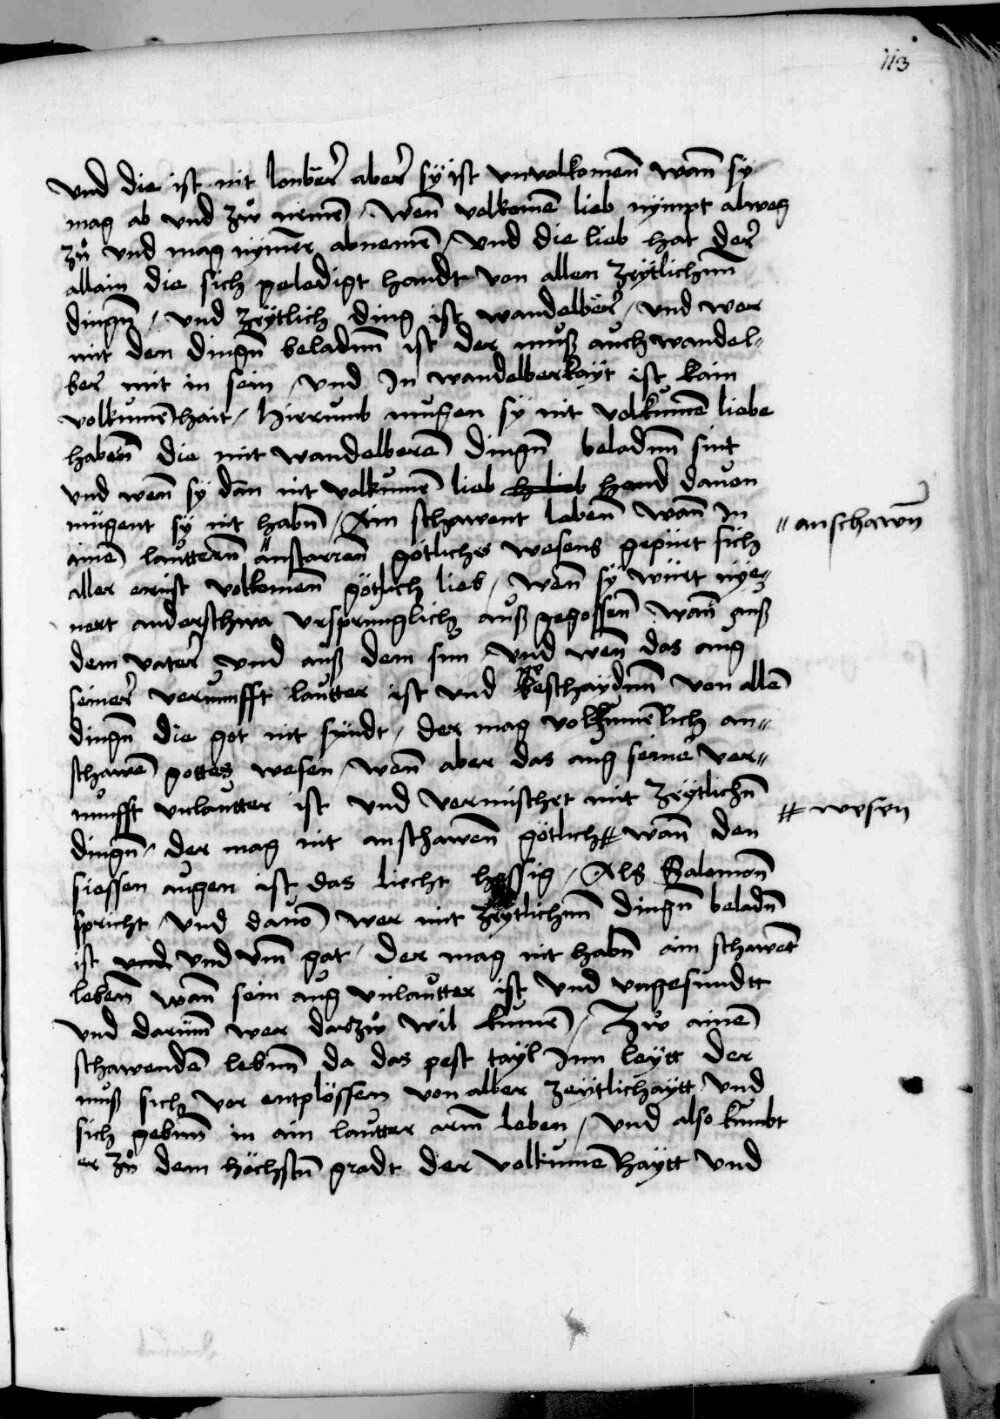 113
vnd die ist nit lonber̄ aber̄ sÿ ist vnvolkomen̄ wan̄ sy
mag ab vnd zů nemē / wen̄ volkomē lieb nympt alweg
zů vnd mag nymer abnemē / vnd die lieb hat der̄
allain die sich geledigt handt von allen zeÿtlichnn̄
dingn̄ / vnd zeÿtlich ding ist wandelber̄ / vnd wer
mit den dingn̄ beladnn̄ ist der muß auch wandel-
ber mit in sein / vnd In wandelberkaÿt ist kain
volkumēhait / hirrumb mugen sy nit volkumē liebe
haben̄ die mit wandelberē dingn̄ beladnn̄ sint
vnd wen̄ sy dan̄ nit volkumē lieb hand dauon
mügent sy nit habn̄ / Ain schawent leben̄ wan̄ In
ainē lauttern̄ anstarren̄ götliches wesens gepürt sich
aller erūst volkomen̄ götlich lieb / wen̄ sÿ würt nÿe-
nert anderschwa vrsprunglich auß gegossen̄ wan̄ auß
dem vater̄ vnd auß dem sun vnd wen̄ das aug
seiner̄ vernunfft lautter ist vnd beschaÿdnn̄ von allē
dingn̄ die got nit syndt / der mag volkumēlich an-
schawē gottes wesen / wen̄ aber das aug seine ver-
nunfft vnlautter ist vnd vermischet mit zeÿtlichn̄
dingn̄ / der mag nit anschawen̄ götlich # wan̄ den
siessen augen ist das liecht hessig / Als Salomon̄
spricht / vnd dauō wer mit zeÿtlichnn̄ dingn̄ beladn̄
ist vnd vnd vm̄ gat / der mag nit habn̄ ain schawēt
leben̄ wan̄ sein aug vnlautter ist vnd vngesundtt
vnd darūm wer darzů wil kumē / Zů ainē
schawendē lebnn̄ da das pest taÿl Inn leÿtt der
muß sich vor entplössen von aller zeÿtlichaÿtt vnd
sich gebnn̄ in ain lautter arm̄ leben / vnd also kumbt
er zů dem höchstn̄ gradt der volkumēhaÿtt vnd
" anschawn̄
# wesen